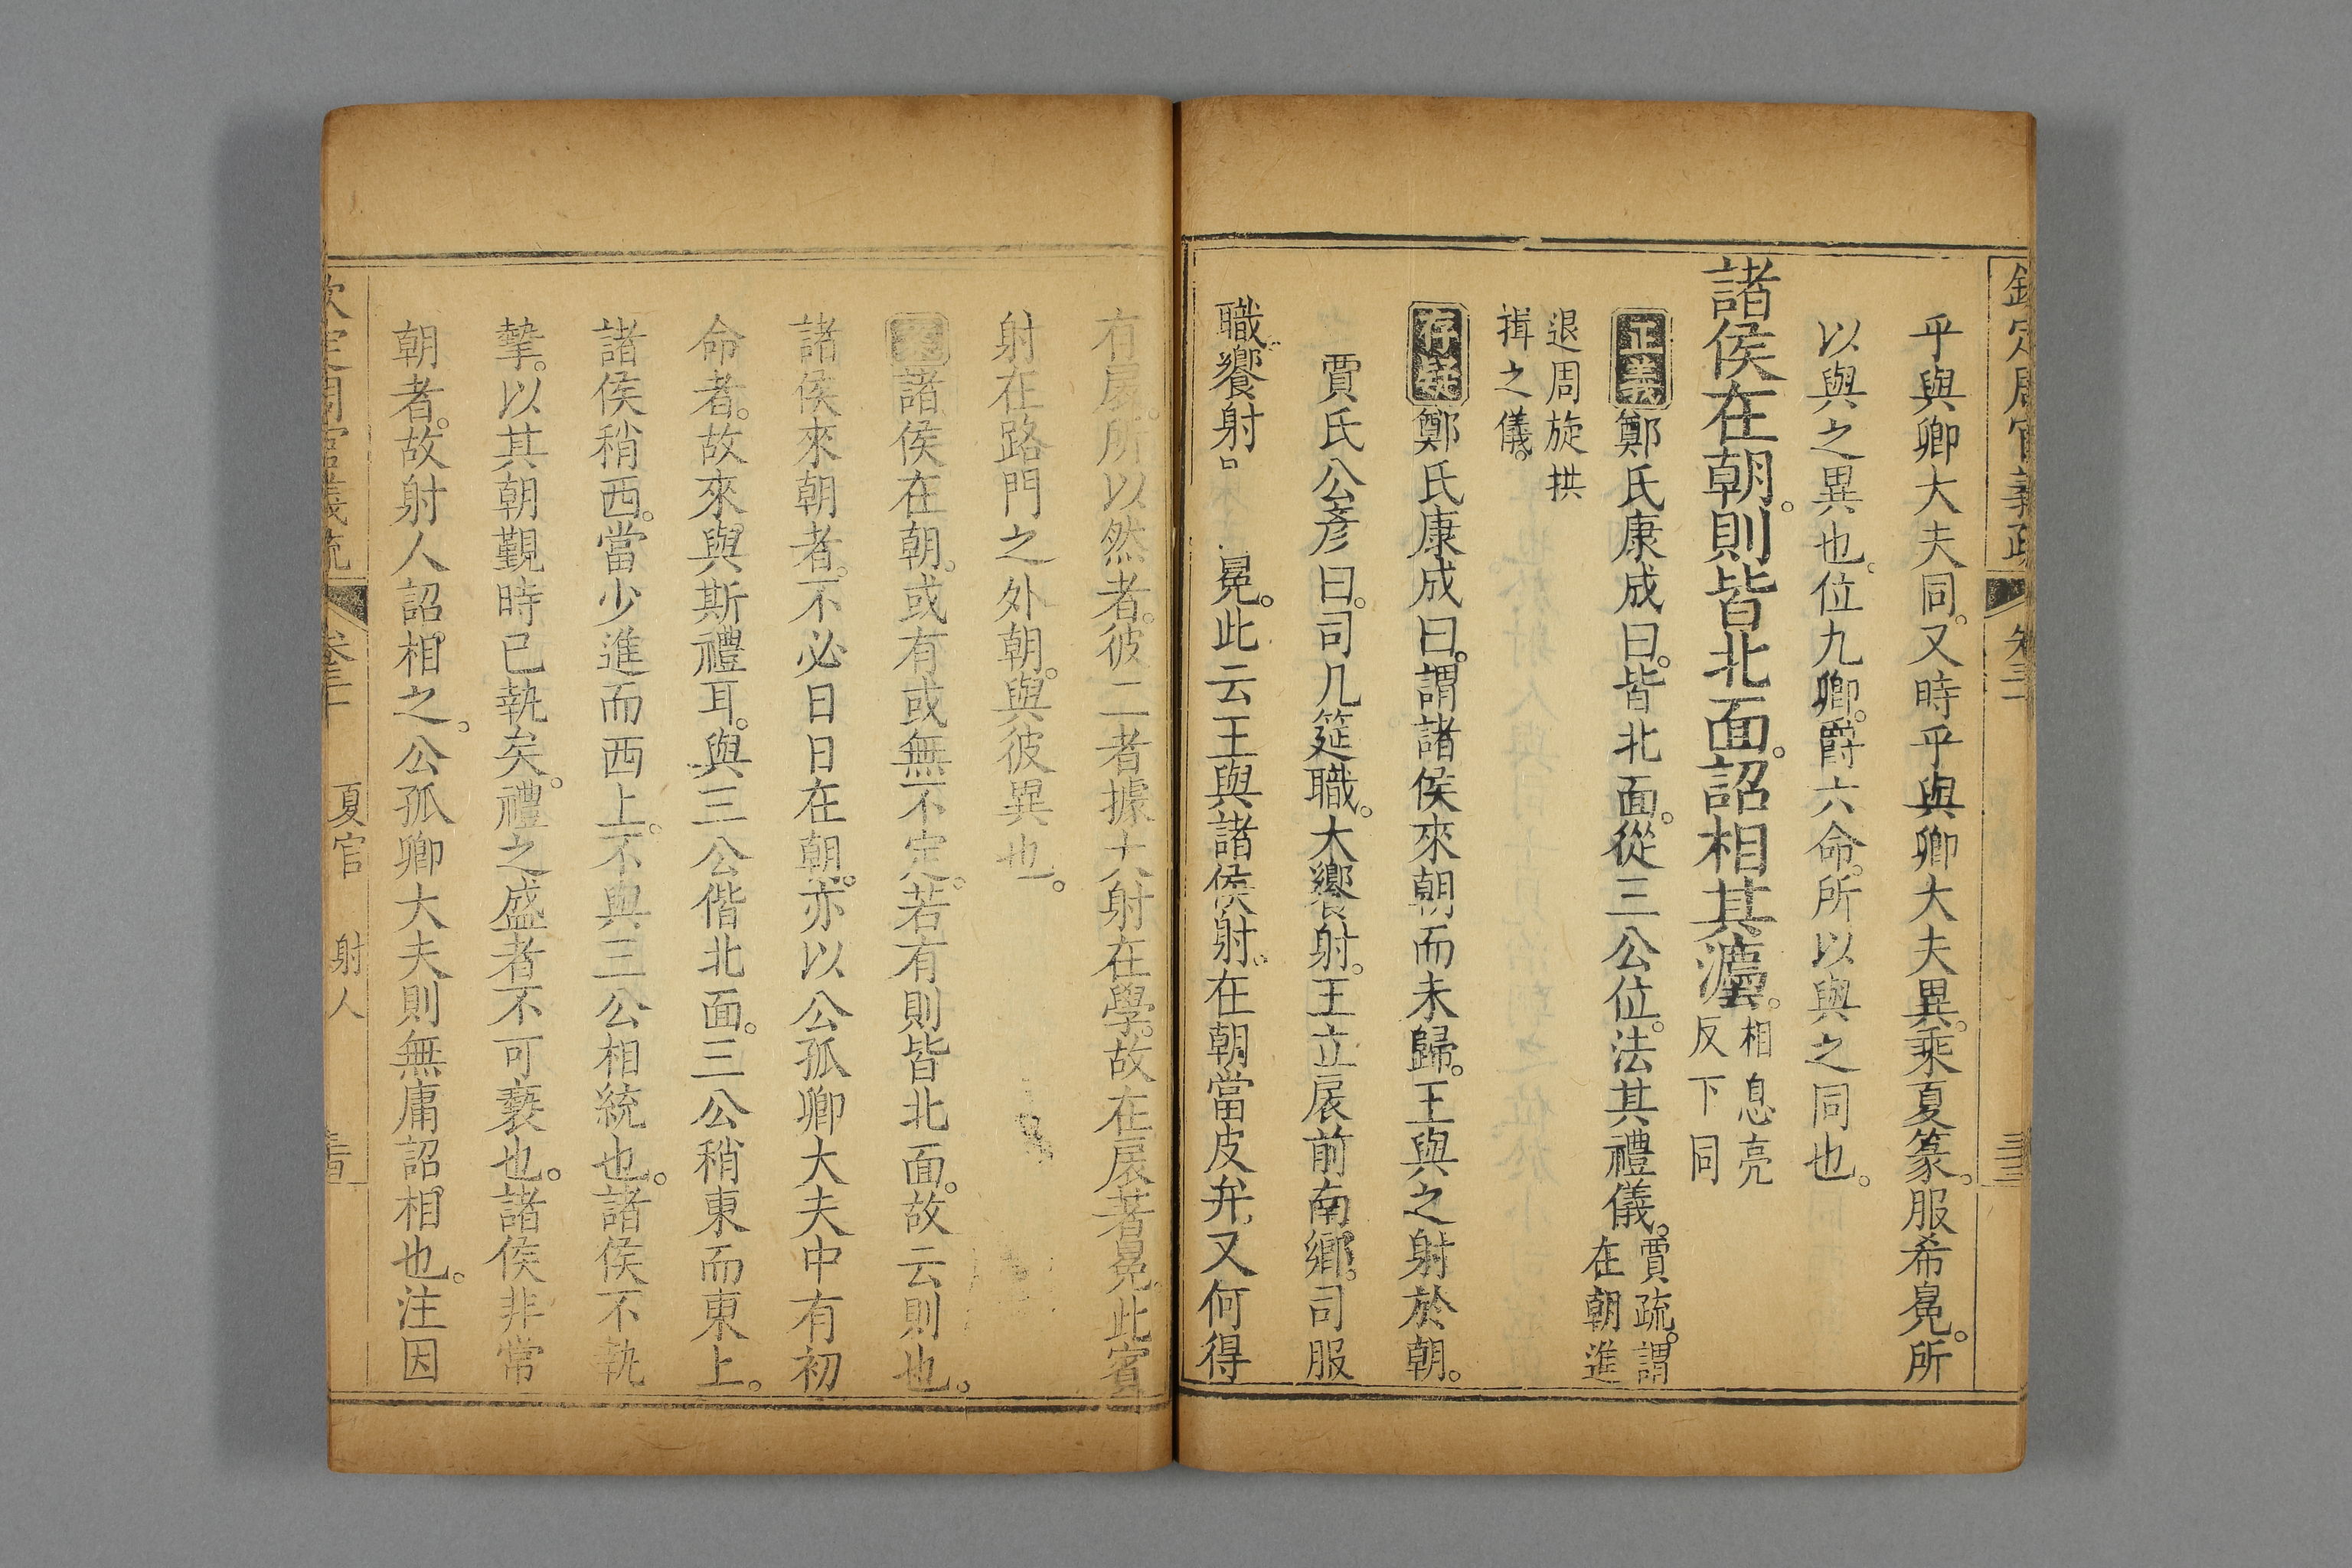 欽定周官義疏 卷三十
乎與卿大夫同。又時乎與卿大夫異。乘夏篆。服希冕。所
以與之異也。位九卿。爵六命。所以與之同也。
諸侯在朝。則皆北面。詔相其灋。相息亮反下同
正義鄭氏康成曰。皆北面。從三公位。法其禮儀。賈疏。謂在朝進
退周旋拱揖之儀。
存疑鄭氏康成曰。謂諸侯來朝而未歸。王與之射於朝。
賈氏公彥曰。司几筵職。大饗射。王立扆前南鄉。司服
職饗射 冕。此云王與諸侯射。在朝當皮弁。又何得
有扆。所以然者。彼二者據大射在學。故在扆著冕。此賓
射在路門之外朝。與彼異也。
諸侯在朝。或有或無不定。若有則皆北面。故云則也。
諸侯來朝者。不必日日在朝。亦以公孤卿大夫中有初
命者。故來與斯禮耳。與三公偕北面。三公稍東而東上。
諸侯稍西。當少進而西上。不與三公相統也。諸侯不執
摯。以其朝覲時已執矣。禮之盛者不可褻也。諸侯非常
朝者。故射人詔相之。公孤卿大夫則無庸詔相也。注因
欽定周官義疏 卷三十 夏官 射人